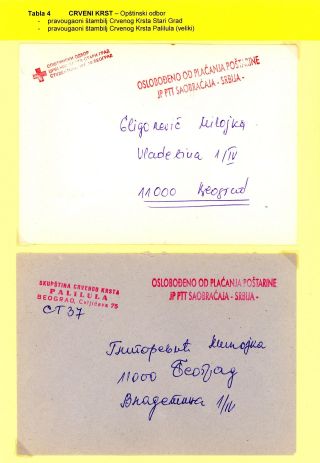 Tabla 4 CRVENI KRST – Opštinski odbor
- pravougaoni štambilj Crvenog Krsta Stari Grad
- pravougaoni štambilj Crvenog Krsta Palilula (veliki)
OPŠTINSKI ODBOR
OSLOBOĐENO OD PLAĆANJA POŠTARINE
JP PTT SAOBRAĆAJA - SRBIJA -
Gligorević Milojka
Vladetina 1/IV
11000 Beograd
SKUPŠTINA CRVENOG KRSTA
PALILULA
BEOGRAD, Cvijićeva 75
CT 37
OSLOBOĐENO OD PLAĆANJA POŠTARINE
JP PTT SAOBRAĆAJA - SRBIJA -
Глигоревић Милојка
11000 Београд
Владетина 1/IV